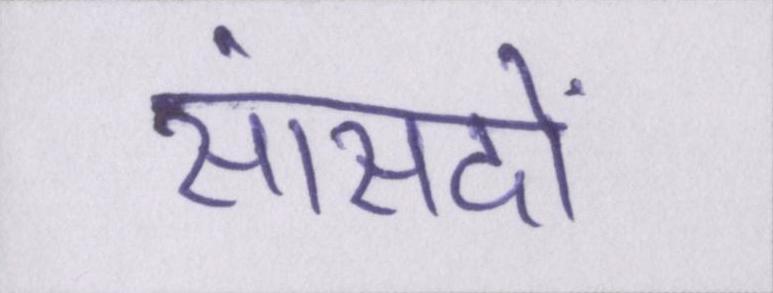 सांसदों